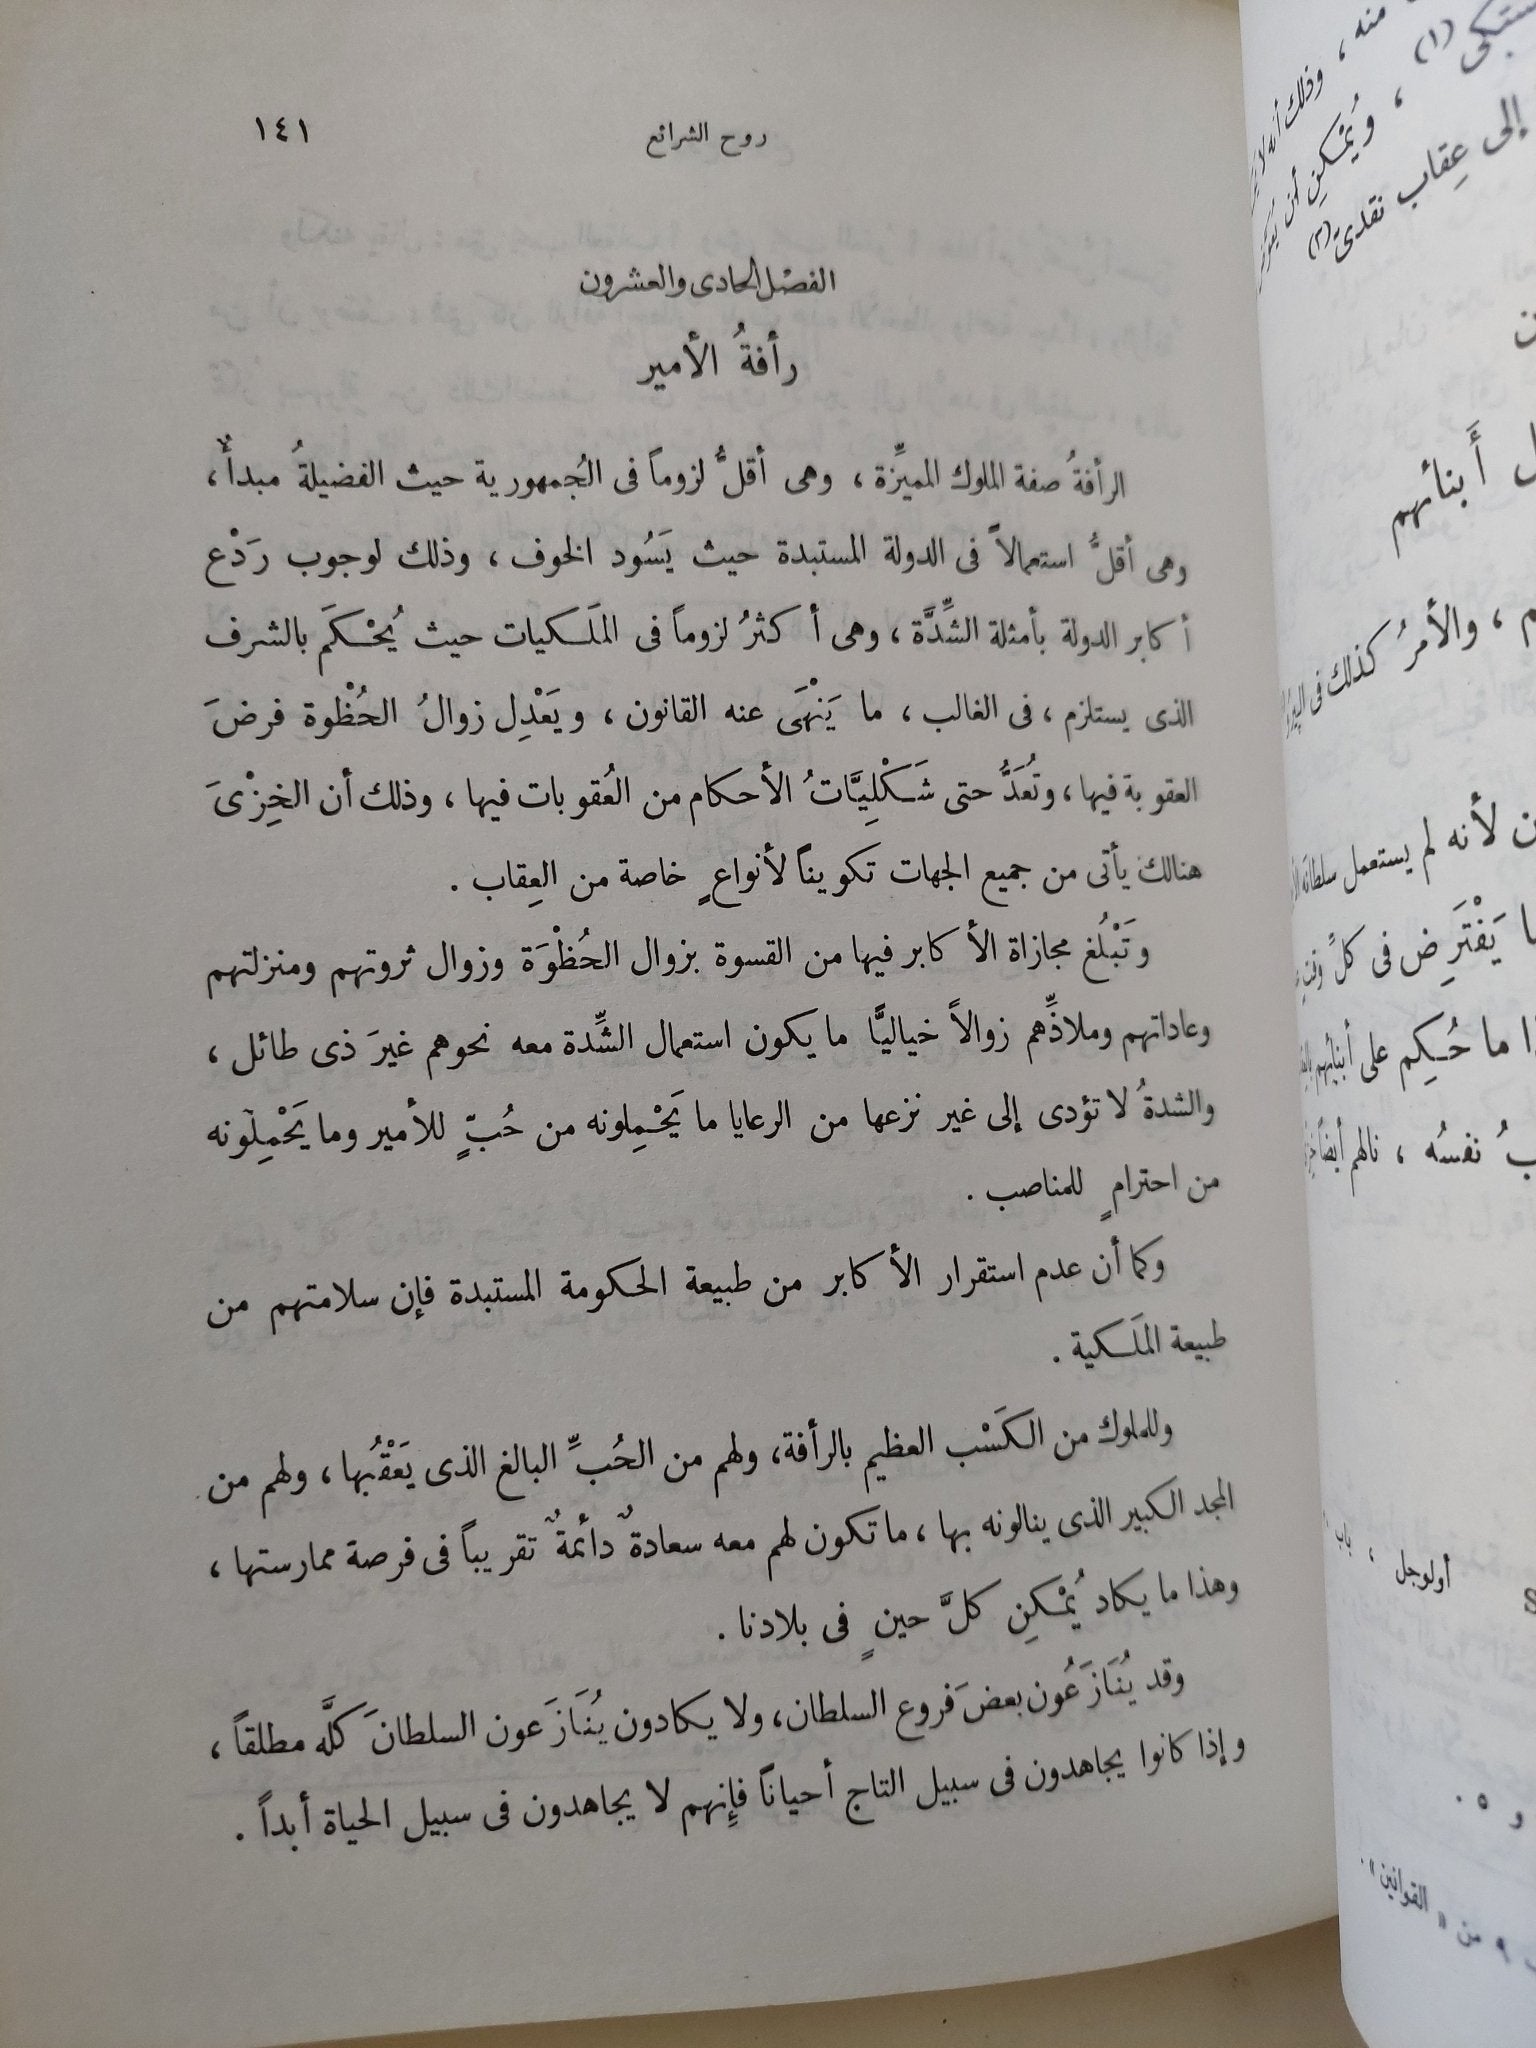 روح الشرائع
١٤١
الفصل الحادى والعشرون
رأفةُ الأمير
الرأفةُ صفة الملوك المميِّزة ، وهى أقلُّ لزوماً فى الجُمهورية حيث الفضيلةُ مبدأٌ ،
وهى أقلُّ استعمالاً فى الدولة المستبدة حيث يَسُود الخوف ، وذلك لوجوب رَدْع
أكابر الدولة بأمثلة الشِّدَّة ، وهى أكثرُ لزوماً فى المَلَكيات حيث يُحْكَم بالشرف
الذى يستلزم ، فى الغالب ، ما يَنْهَى عنه القانون ، ويَعْدِل زوالُ الحُظْوة فرضَ
العقوبة فيها ، وتُعَدُّ حتى شَكْلِيَّاتُ الأحكام من العُقوبات فيها ، وذلك أن الخِزْىَ
هنالك يأتى من جميع الجهات تكويناً لأنواعٍ خاصة من العِقاب .
وتَبْلُغ مجازاة الأكابر فيها من القسوة بزوال الحُظْوَة وزوال ثروتهم ومنزلتهم
وعاداتهم وملاذِّهم زوالاً خياليًّا ما يكون استعمال الشِّدة معه نحوهم غيرَ ذى طائل ،
والشدةُ لا تؤدى إلى غير نزعها من الرعايا ما يَحْمِلونه من حُبٍّ للأمير وما يَحْمِلونه
من احترامٍ للمناصب .
وكما أن عدم استقرار الأكابر من طبيعة الحكومة المستبدة فإن سلامتهم من
طبيعة المَلَكية .
وللملوك من الكَسْب العظيم بالرأفة، ولهم من الحُبِّ البالغ الذى يَعْقُبها ، ولهم من
المجد الكبير الذى ينالونه بها ، ما تكون لهم معه سعادةٌ دائمةٌ تقريباً فى فرصة ممارستها ،
وهذا ما يكاد يُمْكِن كلَّ حينٍ فى بلادنا .
وقد يُنَازَعُون بعضَ فروع السلطان، ولا يكادون يُنَازَعون السلطانَ كلَّه مطلقاً ،
وإذا كانوا يجاهدون فى سبيل التاج أحياناً فإنهم لا يجاهدون فى سبيل الحياة أبداً .
منه ، وذلك أنه لا
(١) ، ويُمْكِن أن
إلى عِقاب نقدى(٢)
أبنائهم
، والأمرُ كذلك فى
لأنه لم يستعمل سلطانه
يَفْتَرِض فى كل وقت
ما حُكِم على أبنائهم
نفسُه ، نالهم أيضاً
أولوجل ، باب
و ٥ .
٩ من « القوانين » .